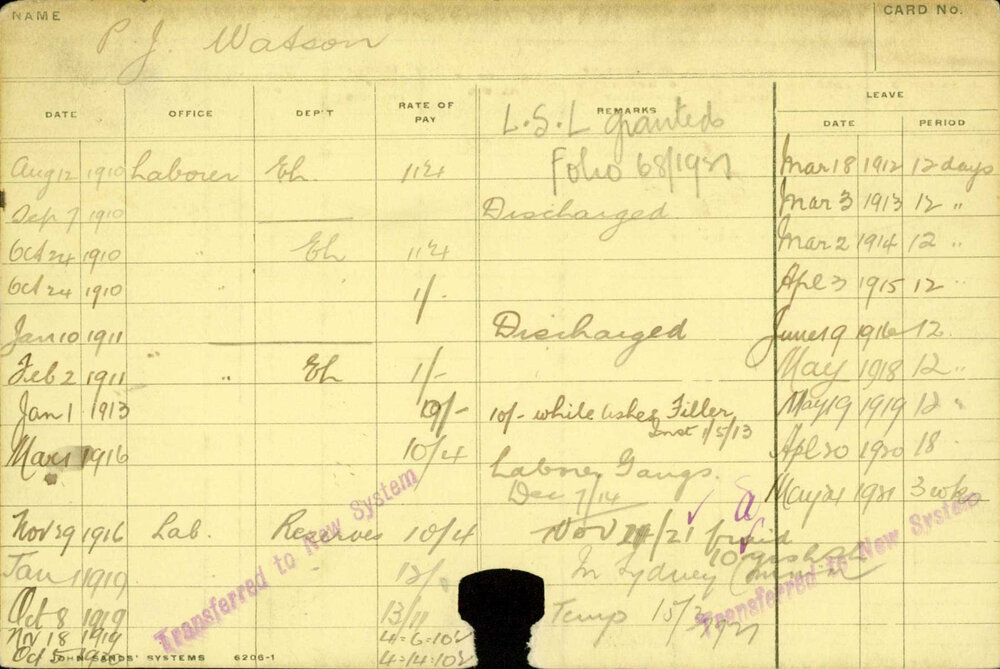 NAME P. J. Watson CARD No.
DATE OFFICE DEP'T RATE OF PAY REMARKS LEAVE
DATE PERIOD
L.S.L granted
Folio 68/1921
Aug 12 1910 Laborer Eh.
Mar 18 1912 12 days
Sep 7 1910 Discharged
Mar 3 1913 12 "
Oct 24 1910 " Eh
Mar 2 1914 12 "
Oct 24 1910 " 1/-
Apl 3 1915 12 "
Jan 10 1911 Discharged
June 19 1916 12 "
Feb 2 1911 " Eh 1/-
May 1918 12 "
Jan 1 1913 10/- 10/- while Ashes Filler
Inst 1/5/13
May 19 1919 12 "
Mar 1 1916 10/4 Laborer Gangs.
Dec 7/14
Apl 20 1920 18 "
May 21 1921 3 wks
Nov 29 1916 Lab. Reserves 10/4 Nov /21
Jan 1 1919 12/ In Sydney
10 yrs
Oct 8 1919 13/11 Temp 15/
Nov 18 1919 4=6=10½
Oct 5 4=14=10½
Transferred to New System
Transferred to New System
JOHN SANDS' SYSTEMS 6206-1